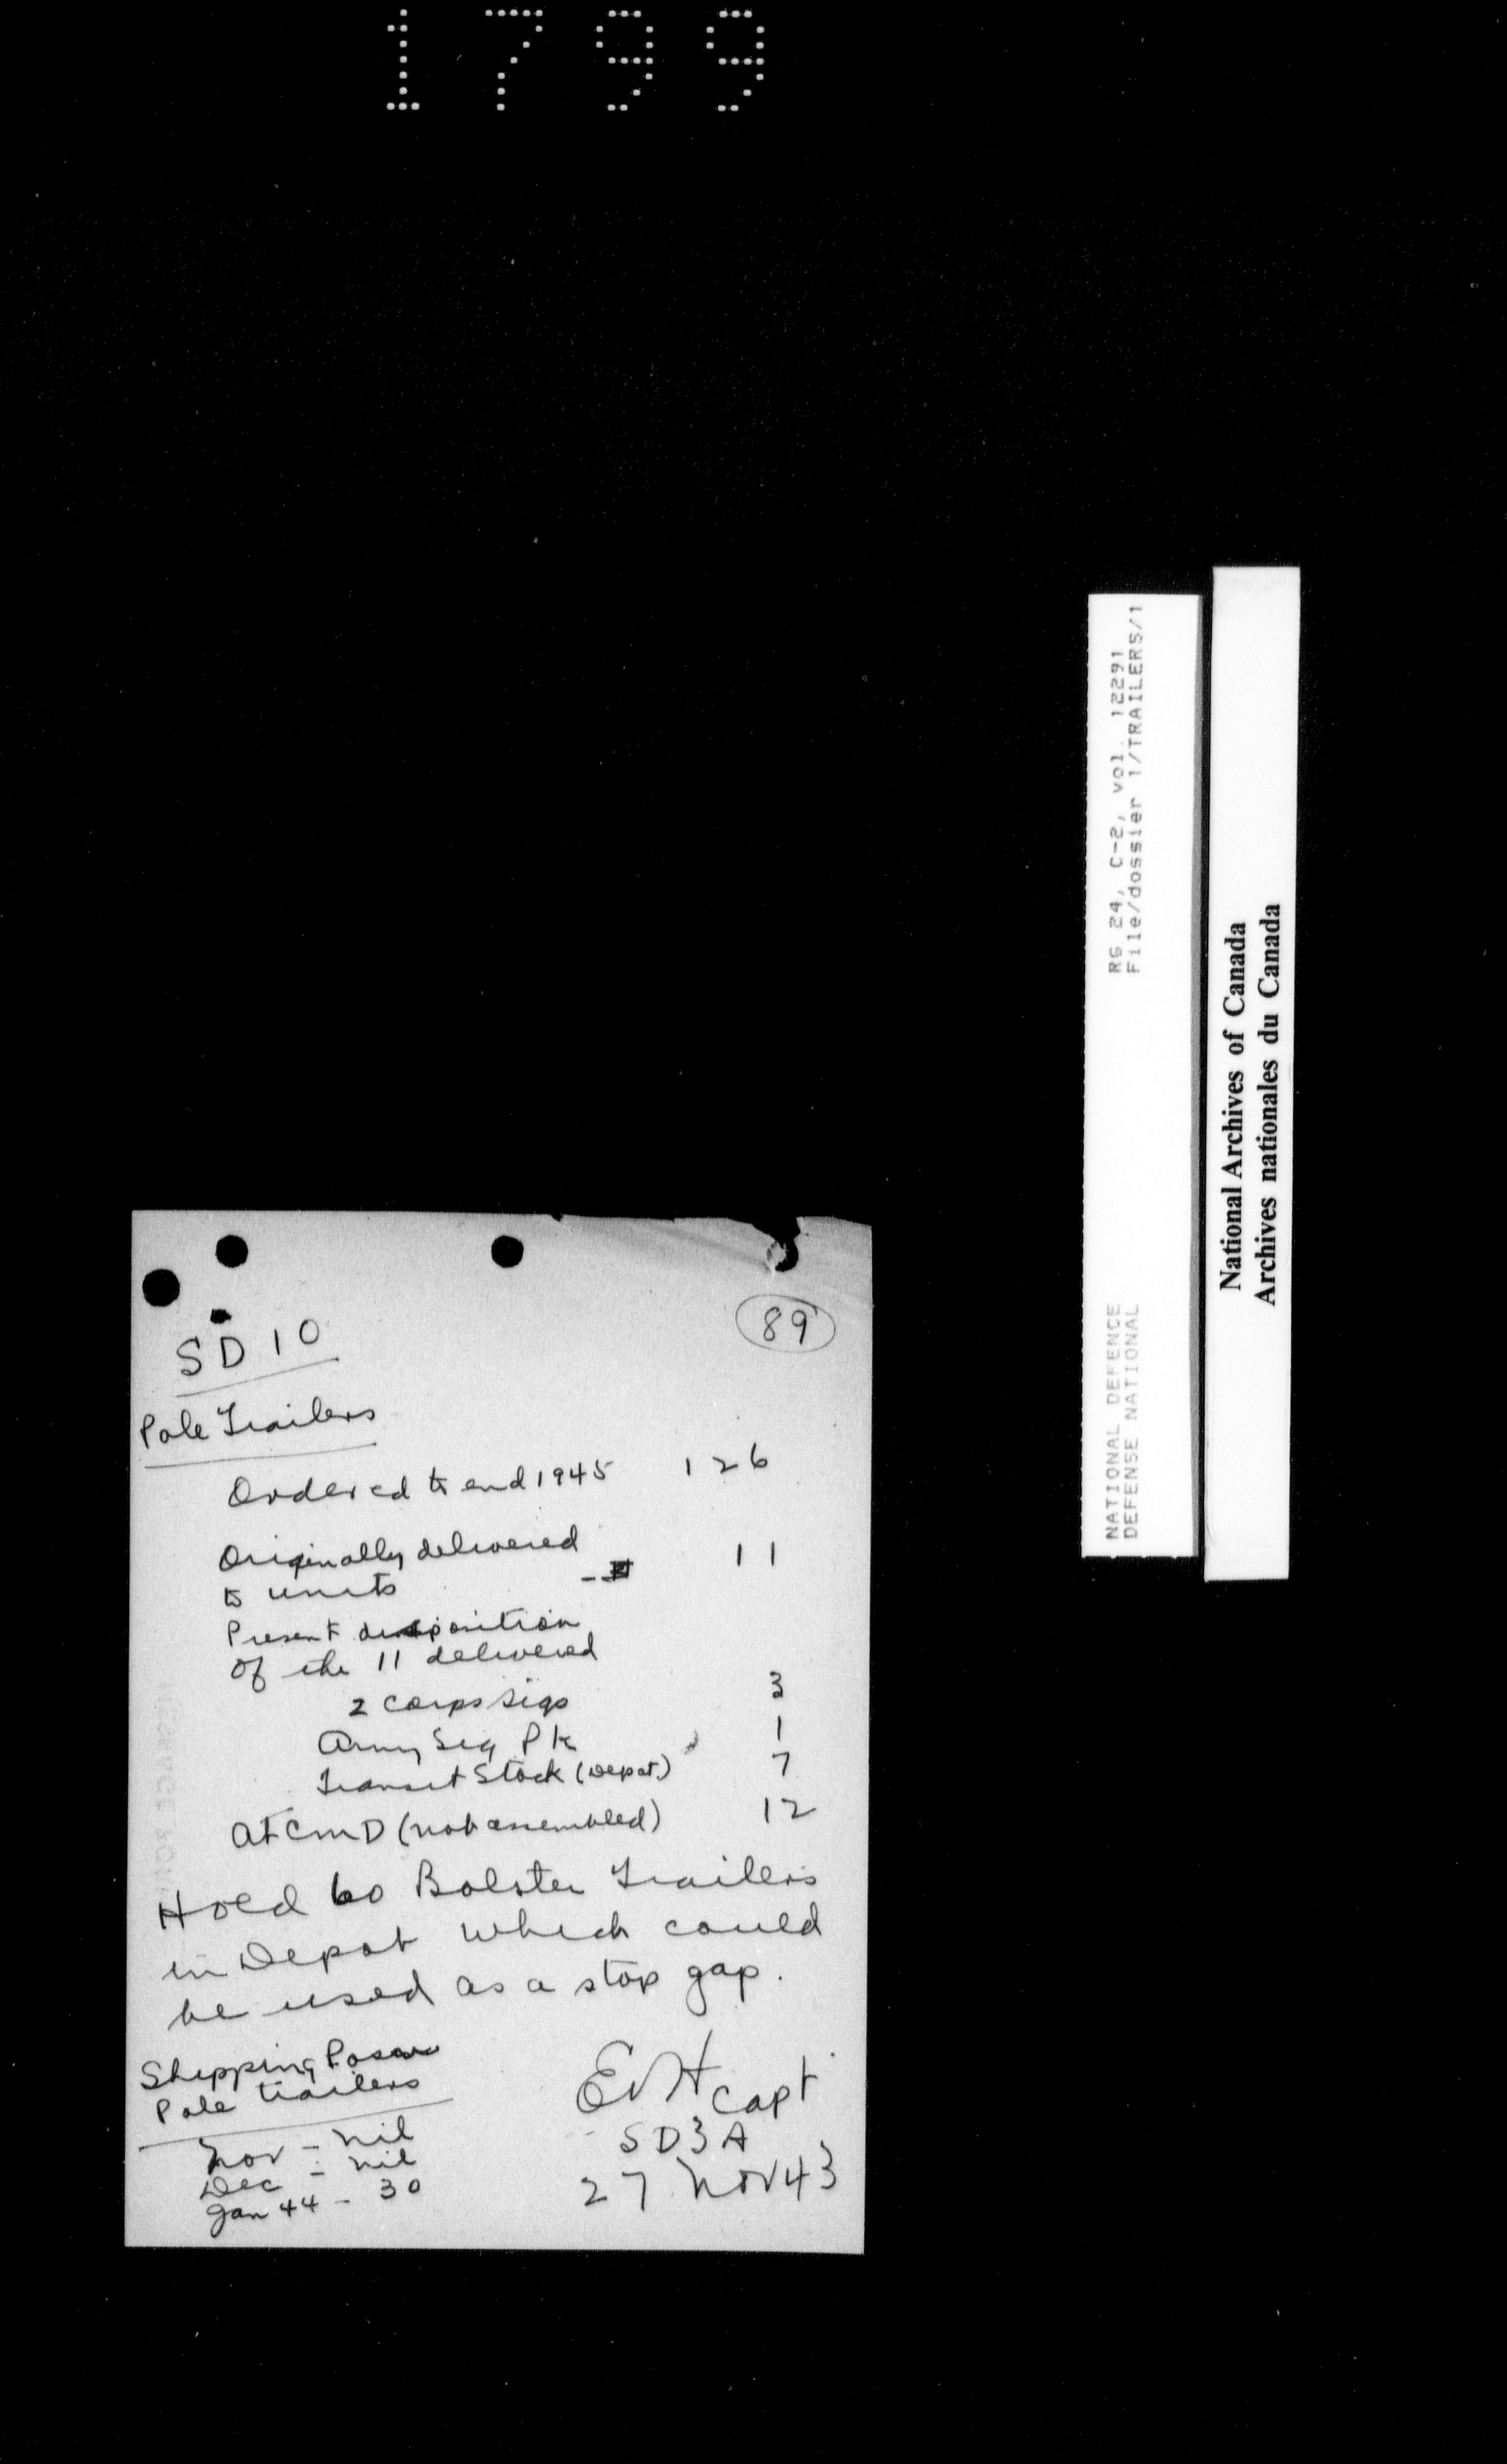 1799
89
SD 10
Pole Trailers
Ordered to end 1945 126
Originally delivered
to units 11
Present disposition
of the 11 delivered
2 Corps Sigs 3
Army Sig Pk 1
Transit Stock (Depot) 7
At CMD (not assembled) 12
Hold 60 Bolster Trailers
in Depot which could
be used as a stop gap.
Shipping
Pole trailers
Nov - nil
Dec - nil
Jan 44 - 30
Capt
SD3A
27 Nov 43
RG 24, C-2, vol. 12291
File/dossier 1/TRAILERS/1
NATIONAL DEFENCE
DEFENSE NATIONAL
National Archives of Canada
Archives nationales du Canada